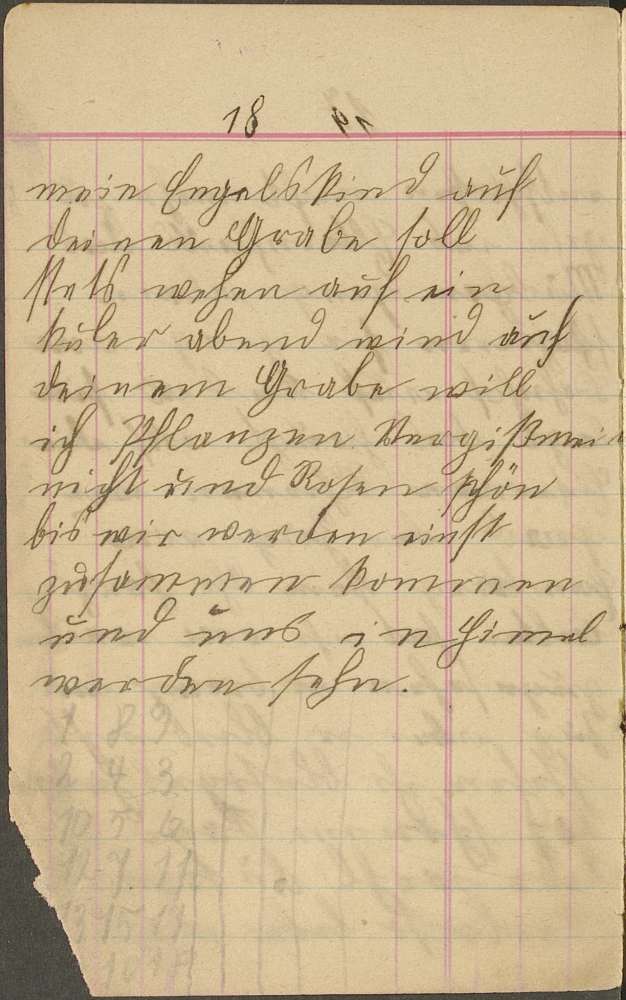 18
mein Engelskind auf
deinen Grabe soll
stets wehen auf ein
kuler abend wind auf
deinem Grabe will
ich Pflanzen Vergißmei
nicht und Rosen schön
bis wir werden einst
zusammen kommen
und uns in Himel
werden sehn.
1 8 9
2 4 3
10 5 6
11 7 11